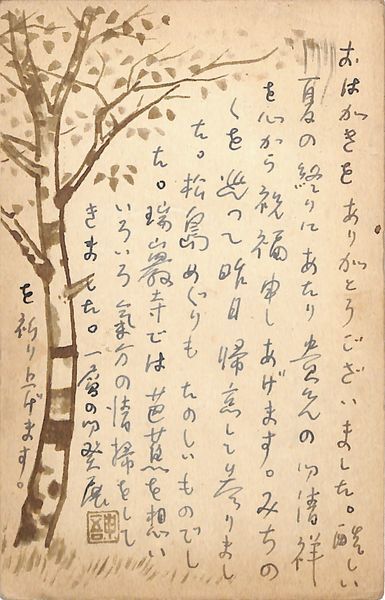 おはがきをありがとうございました。酷しい
夏の終りにあたり貴兄の御清祥
を心から祝福申しあげます。みちの
くを巡って昨日帰京して参りまし
た。松島めぐりもたのしいものでし
た。瑞巖寺では芭蕉を想い
いろいろ氣分の清掃をして
きました。一層の御発展
を祈り上げます。